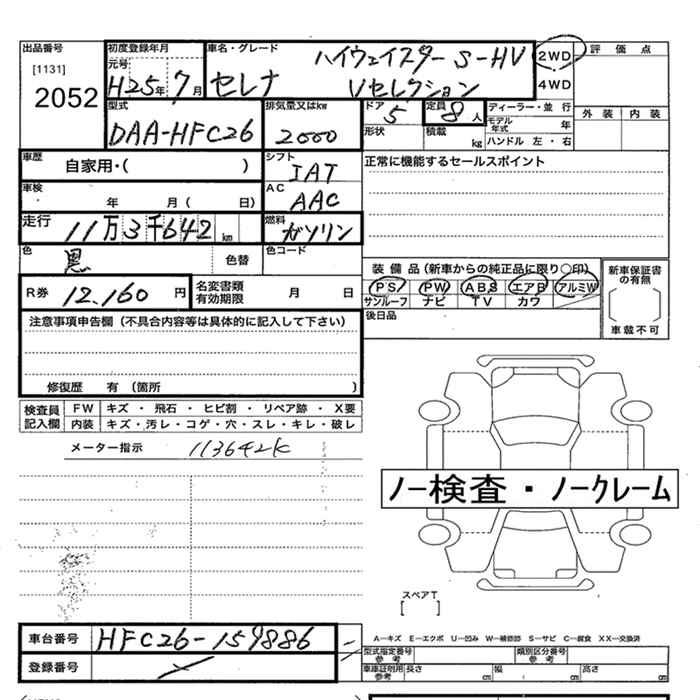 出品番号
[1131]
2052
初度登録年月
元号
H25年 7月
車名・グレード
ハイウェイスター S-HV
セレナ Vセレクション
2WD
4WD
評価点
外装 内装
型式
DAA-HFC26
排気量又はkw
2000
ドア
5
形状
定員
8人
積載
kg
ディーラー・並行
モデル年式 年
ハンドル 左・右
車歴
自家用・( )
シフト
IAT
車検
年 月( 日)
AC
AAC
正常に機能するセールスポイント
走行
11万3千642km
燃料
ガソリン
色
黒
色替
色コード
R券 12,160円
名変書類有効期限
月 日
装備品(新車からの純正品に限り○印)
PS PW ABS エアB アルミW
サンルーフ ナビ TV カワ
後日品
新車保証書の有無
車載不可
注意事項申告欄(不具合内容等は具体的に記入して下さい)
修復歴 有(箇所 )
検査員記入欄
FW キズ・飛石・ヒビ割・リペア跡・X要
内装 キズ・汚レ・コゲ・穴・スレ・キレ・破レ
メーター指示 113642K
ノー検査・ノークレーム
スペアT
[ ]
車台番号 HFC26-159886
登録番号
A―キズ E―エクボ U―凹み W―補修跡 S―サビ C―腐食 XX―交換済
型式指定番号 参考
類別区分番号 参考
車庫証明用 参考
長さ cm
幅 cm
高さ cm